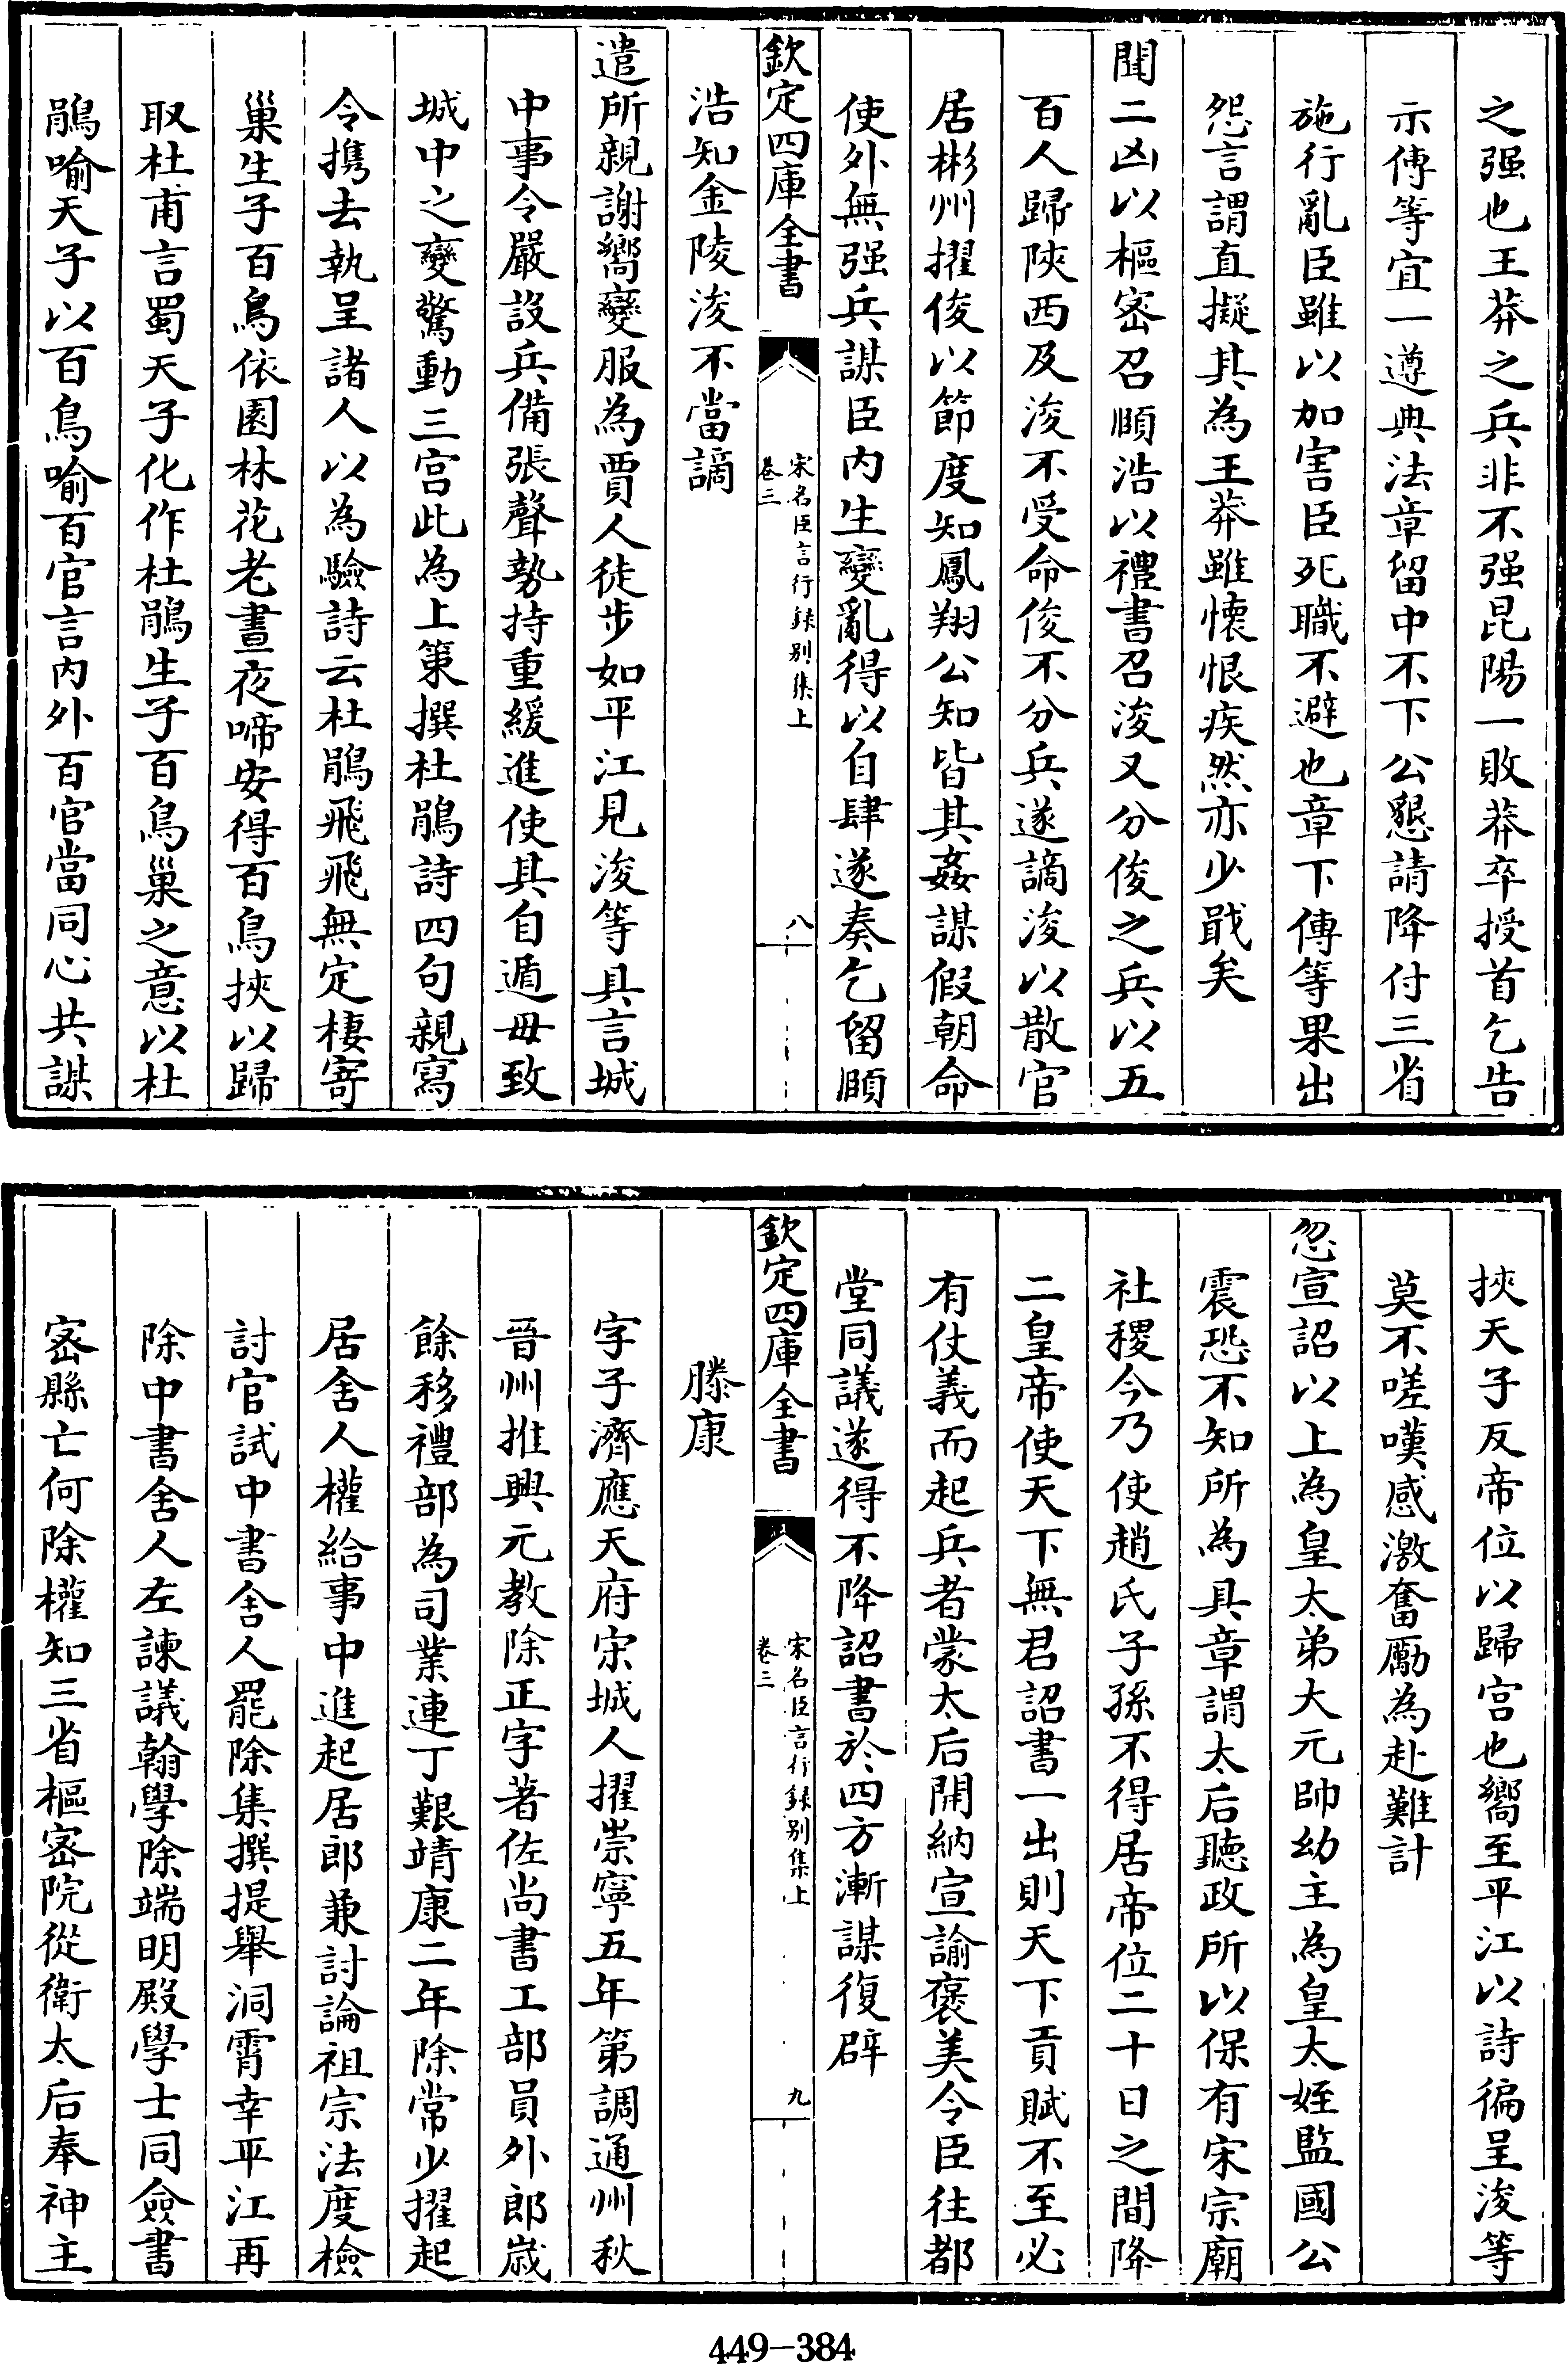 之强也王莽之兵非不强昆陽一敗莽卒授首乞告
示傅等宜一遵典法章留中不下公懇請降付三省
施行亂臣雖以加害臣死職不避也章下傅等果出
怨言謂直擬其為王莽雖懷恨疾然亦少戢矣
聞二凶以樞宻召頤浩以禮書召浚又分俊之兵以五
百人歸陜西及浚不受命俊不分兵遂謫浚以散官
居彬州擢俊以節度知鳳翔公知皆其姦謀假朝命
使外無强兵謀臣内生變亂得以自肆遂奏乞留頤
欽定四庫全書
宋名臣言行録别集上
卷三
八
浩知金陵浚不當謫
遣所親謝嚮變服為賈人徒步如平江見浚等具言城
中事令嚴設兵備張聲勢持重緩進使其自遁毋致
城中之變驚動三宫此為上策撰杜鵑詩四句親寫
令携去執呈諸人以為驗詩云杜鵑飛飛無定棲寄
巢生子百鳥依園林花老晝夜啼安得百鳥挾以歸
取杜甫言蜀天子化作杜鵑生子百鳥巢之意以杜
鵑喻天子以百鳥喻百官言内外百官當同心共謀
挾天子反帝位以歸宫也嚮至平江以詩徧呈浚等
莫不嗟嘆感激奮勵為赴難計
忽宣詔以上為皇太弟大元帥幼主為皇太姪監國公
震恐不知所為具章謂太后聽政所以保有宋宗廟
社稷今乃使趙氏子孫不得居帝位二十日之間降
二皇帝使天下無君詔書一出則天下貢賦不至必
有仗義而起兵者蒙太后開納宣諭褒美令臣往都
堂同議遂得不降詔書於四方漸謀復辟
欽定四庫全書
宋名臣言行録别集上
卷三
九
滕康
字子濟應天府宋城人擢崇寧五年第調通州秋
晉州推興元教除正字著佐尚書工部員外郎歲
餘移禮部為司業連丁艱靖康二年除常少擢起
居舍人權給事中進起居郎兼討論祖宗法度檢
討官試中書舍人罷除集撰提舉洞霄幸平江再
除中書舍人左諫議翰學除端明殿學士同僉書
宻縣亡何除權知三省樞宻院從衛太后奉神主
449-384